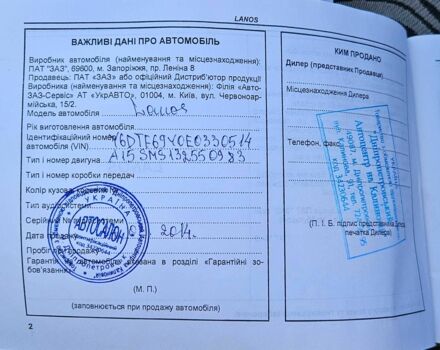 LANOS
ВАЖЛИВІ ДАНІ ПРО АВТОМОБІЛЬ
Виробник автомобіля (найменування та місцезнаходження):
ПАТ "ЗАЗ", 69600, м. Запоріжжя, пр. Леніна 8
Продавець: ПАТ «ЗАЗ» або офіційний Дистриб'ютор продукції
Виробника (найменування та місцезнаходження): Філія «Авто-
ЗАЗ-Сервіс» АТ «УкрАВТО», 01004, м. Київ, вул. Червоноар-
мійська, 15/2.
Модель автомобіля Lanos
Рік виготовлення автомобіля
Ідентифікаційний номер
автомобіля (VIN) Y6DTF69Y0E0330514
Тип і номер двигуна A15SMS132550983
Тип і номер коробки передач
Колір кузова
Тип аудіосистеми
Серійний №
Дата продажу 2014.
Пробіг до продажу
Гарантія на автомобіль вказана в розділі «Гарантійні зо-
бов'язання».
(М. П.)
(заповнюється при продажу автомобіля)
УКРАЇНА
АВТОСАЛОН
КИМ ПРОДАНО
Дилер (представник Продавця)
Місцезнаходження Дилера
Телефон, факс
Автоцентр на Калиновій
(П. І. Б. підпис представника Дилера
печатка Дилера)
2